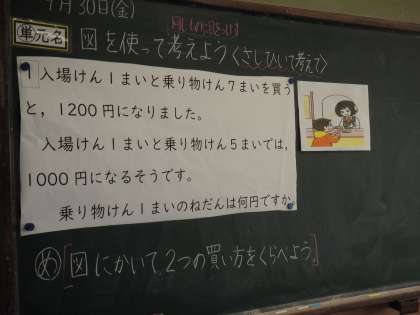 9月30日(金)
単元名 図を使って考えよう〈さしひいて考えて〉
1 入場けん1まいと乗り物けん7まいを買う
と，1200円になりました。
入場けん1まいと乗り物けん5まいでは，
1000円になるそうです。
乗り物けん1まいのねだんは何円ですか
め 図にかいて，2つの買い方をくらべよう。